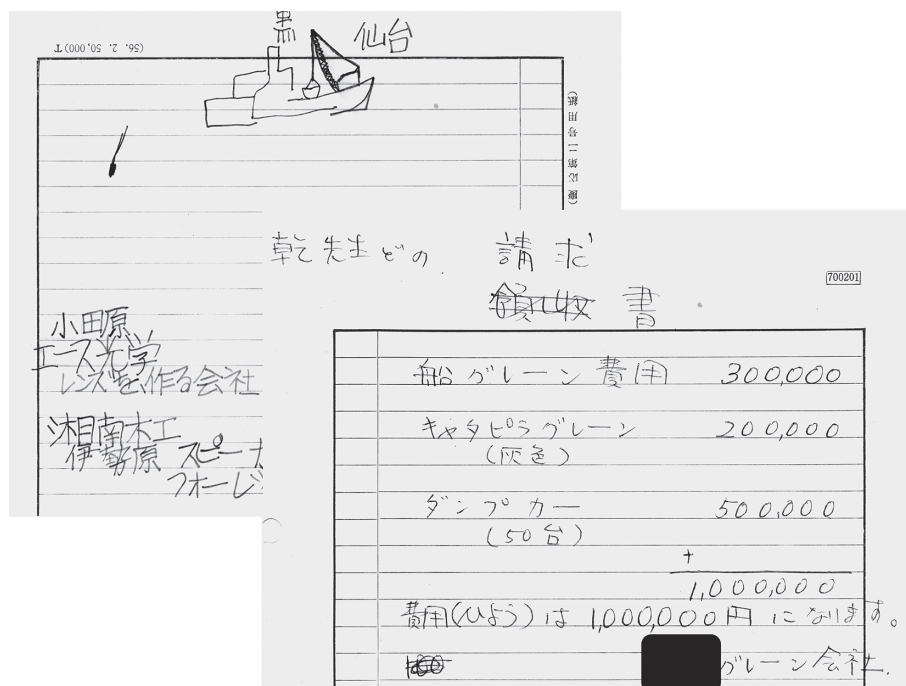 黒 仙台
(56. 2. 50,000) T
(慶応第二号用紙)
小田原
エース光学
レンズを作る会社
湘南木工
伊勢原 スピー
フォーレ
乾先生どの 請求
700201
領収 書
船グレーン費用 300,000
キャタピラグレーン 200,000
(灰色)
ダンプカー 500,000
(50台)
+
1,000,000
費用(ひよう)は 1,000,000円 になります。
グレーン会社.